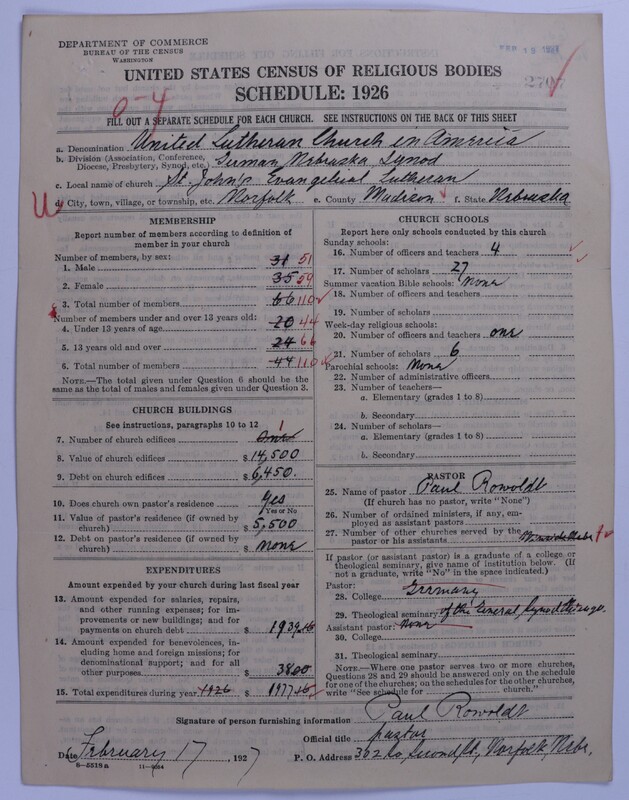 DEPARTMENT OF COMMERCE
BUREAU OF THE CENSUS
WASHINGTON
UNITED STATES CENSUS OF RELIGIOUS BODIES
SCHEDULE: 1926
0-4
FILL OUT A SEPARATE SCHEDULE FOR EACH CHURCH. SEE INSTRUCTIONS ON THE BACK OF THIS SHEET
a. Denomination United Lutheran Church in America
b. Division (Association, Conference, Diocese, Presbytery, Synod, etc.) German Nebraska Synod
c. Local name of church St. John's Evangelical Lutheran
d. City, town, village, or township, etc. Norfolk e. County Madison f. State Nebraska
MEMBERSHIP
Report number of members according to definition of member in your church
Number of members, by sex:
1. Male 31 51
2. Female 35 59
3. Total number of members 66 110
Number of members under and over 13 years old:
4. Under 13 years of age 20 44
5. 13 years old and over 24 66
6. Total number of members 44 110
NOTE.—The total given under Question 6 should be the same as the total of males and females given under Question 3.
CHURCH BUILDINGS
See instructions, paragraphs 10 to 12
7. Number of church edifices One 1
8. Value of church edifices $ 14,500
9. Debt on church edifices $ 6,450.
10. Does church own pastor's residence Yes
(Yes or No)
11. Value of pastor's residence (if owned by church) $ 5,500
12. Debt on pastor's residence (if owned by church) $ None
EXPENDITURES
Amount expended by your church during last fiscal year
13. Amount expended for salaries, repairs, and other running expenses; for improvements or new buildings; and for payments on church debt $ 1939.
14. Amount expended for benevolences, including home and foreign missions; for denominational support; and for all other purposes $ 38.00
15. Total expenditures during year 1926 $ 1977
CHURCH SCHOOLS
Report here only schools conducted by this church
Sunday schools:
16. Number of officers and teachers 4
17. Number of scholars 27
Summer vacation Bible schools: None
18. Number of officers and teachers
19. Number of scholars
Week-day religious schools:
20. Number of officers and teachers one
21. Number of scholars 6
Parochial schools: None
22. Number of administrative officers
23. Number of teachers—
a. Elementary (grades 1 to 8)
b. Secondary
24. Number of scholars—
a. Elementary (grades 1 to 8)
b. Secondary
PASTOR
25. Name of pastor Paul Rowoldt
(If church has no pastor, write "None")
26. Number of ordained ministers, if any, employed as assistant pastors
27. Number of other churches served by the pastor or his assistants
If pastor (or assistant pastor) is a graduate of a college or theological seminary, give name of institution below. (If not a graduate, write "No" in the space indicated.)
Pastor:
28. College Germany
29. Theological seminary of the General Synod
Assistant pastor: None
30. College
31. Theological seminary
NOTE.—Where one pastor serves two or more churches, Questions 28 and 29 should be answered only on the schedule for one of the churches; on the schedules for the other churches, write "See schedule for church."
Signature of person furnishing information Paul Rowoldt
Official title pastor
Date February 17, 1927 P. O. Address 302 So. Second St., Norfolk, Nebr.
8-5518a